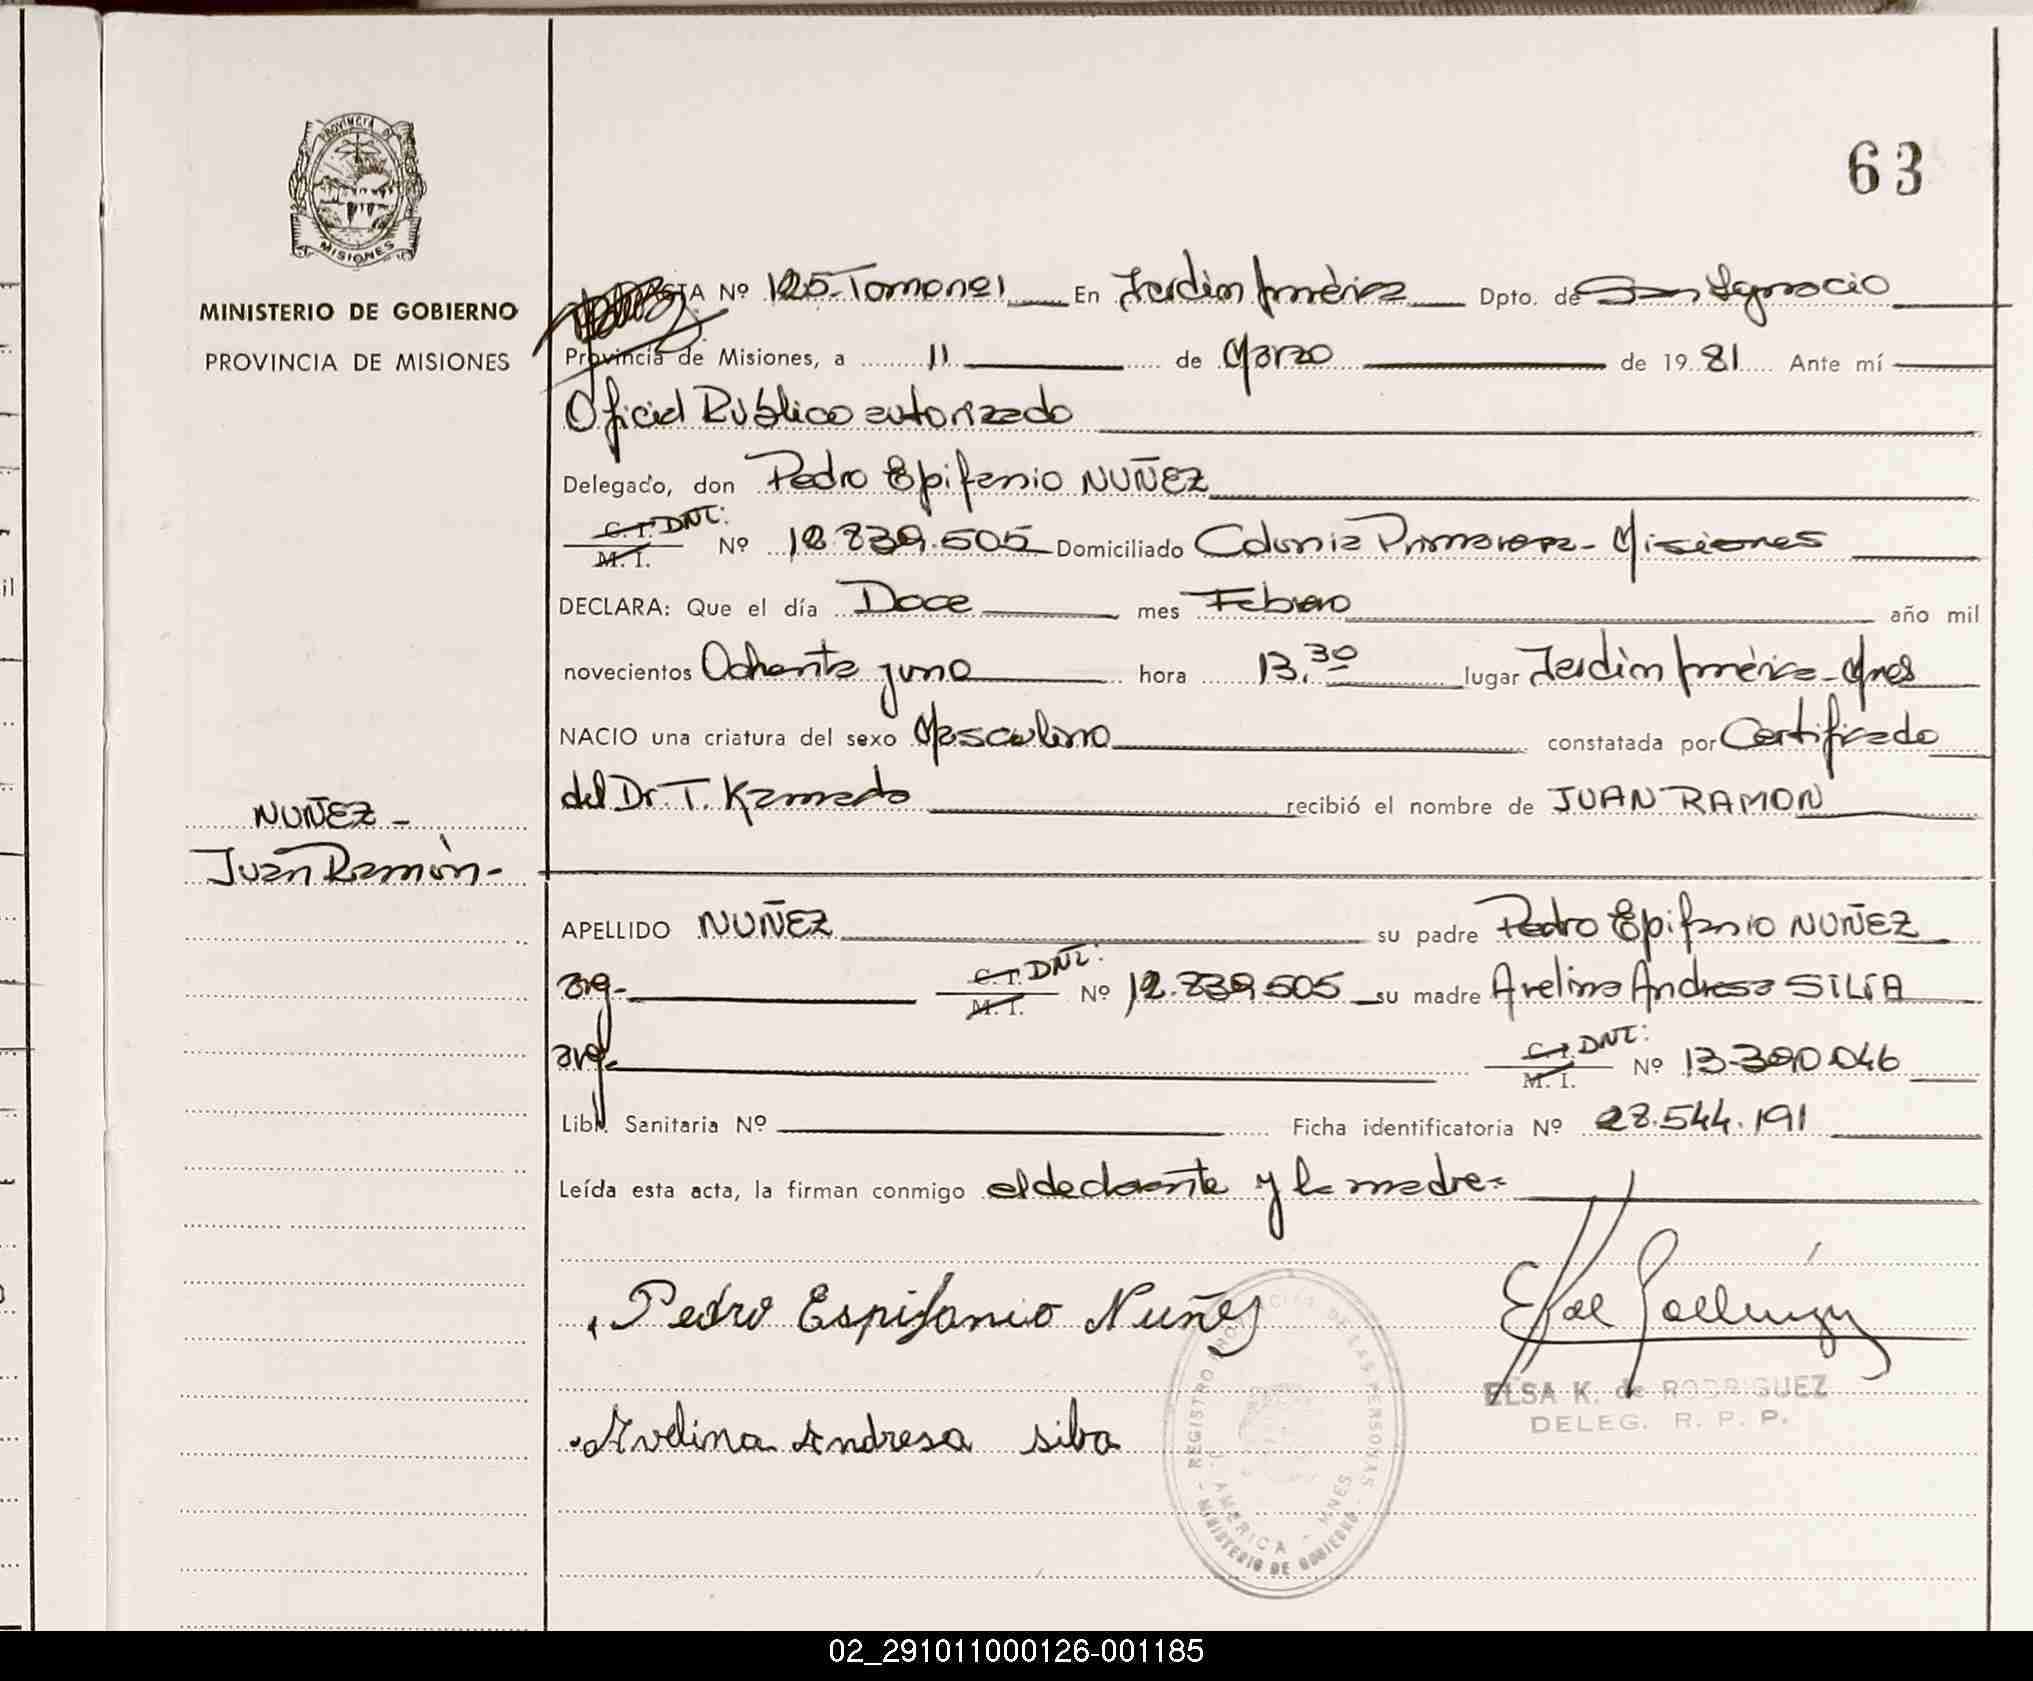 63
PROVINCIA DE
MISIONES
MINISTERIO DE GOBIERNO
PROVINCIA DE MISIONES
ACTA Nº 125-Tomo nº1 En Jardín América Dpto. de San Ignacio
Provincia de Misiones, a 11 de Marzo de 1981 Ante mí
Oficial Público autorizado
Delegado, don Pedro Epifanio NUÑEZ
C.I. DNI:
M. I. Nº 12.839.505 Domiciliado Colonia Primavera - Misiones
DECLARA: Que el día Doce mes Febrero año mil
novecientos Ochenta y uno hora 13,30 lugar Jardín América - Mnes
NACIO una criatura del sexo Masculino constatada por Certificado
del Dr. T. recibió el nombre de JUAN RAMON
NUÑEZ -
Juan Ramón -
APELLIDO NUÑEZ su padre Pedro Epifanio NUÑEZ
arg. C.I. DNI: M. I. Nº 12.839.505 su madre Avelina Andresa SILVA
arg. C.I. DNI: M. I. Nº 13.390.046
Libr. Sanitaria Nº Ficha identificatoria Nº 28.544.191
Leída esta acta, la firman conmigo el declarante y la madre =
Pedro Espifanio Nuñez
ELSA K. de RODRIGUEZ
DELEG. R. P. P.
Avelina Andresa silva
REGISTRO PROVINCIAL DE LAS PERSONAS
J. AMERICA - MNES
- MINISTERIO DE GOBIERNO -
02_291011000126-001185